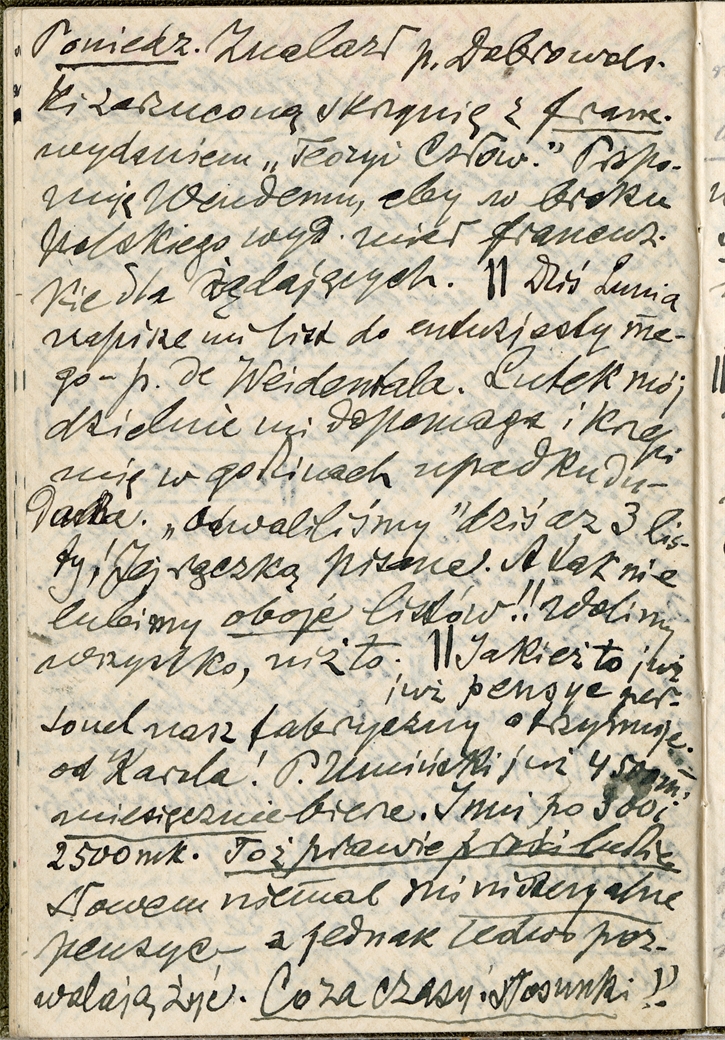 Poniedz. Znalazł p. Dąbrows-
ki zarzuconą skrzynię z franc.
wydaniem „Teoryi Człow.” Propo-
nuję Wendemu, aby w braku
polskiego wyd. miał francuz-
kie dla żądających. || Dziś Lunia
napisze mi list do entuzjasty me-
go – p. de Weidentala. Lutek mój
dzielnie mi dopomaga i krzepi
mię w godzinach upadku du-
cha. „Odwaliliśmy” dziś aż 3 lis-
ty! Jej rączką pisane. A tak nie
lubimy oboje listów!! Wolimy
wszystko, niż to. || Jakież to już
już pensye per-
sonel nasz fabryczny otrzymuje
od Karola! P. Umiński już 4500 m.
miesięcznie bierze. Inni po 300i
2500 mk. Toż prawie
Słowem niemal ministeryalne
pensye – a jednak ledwo poz-
walają żyć. Co za czasy i stosunki!!